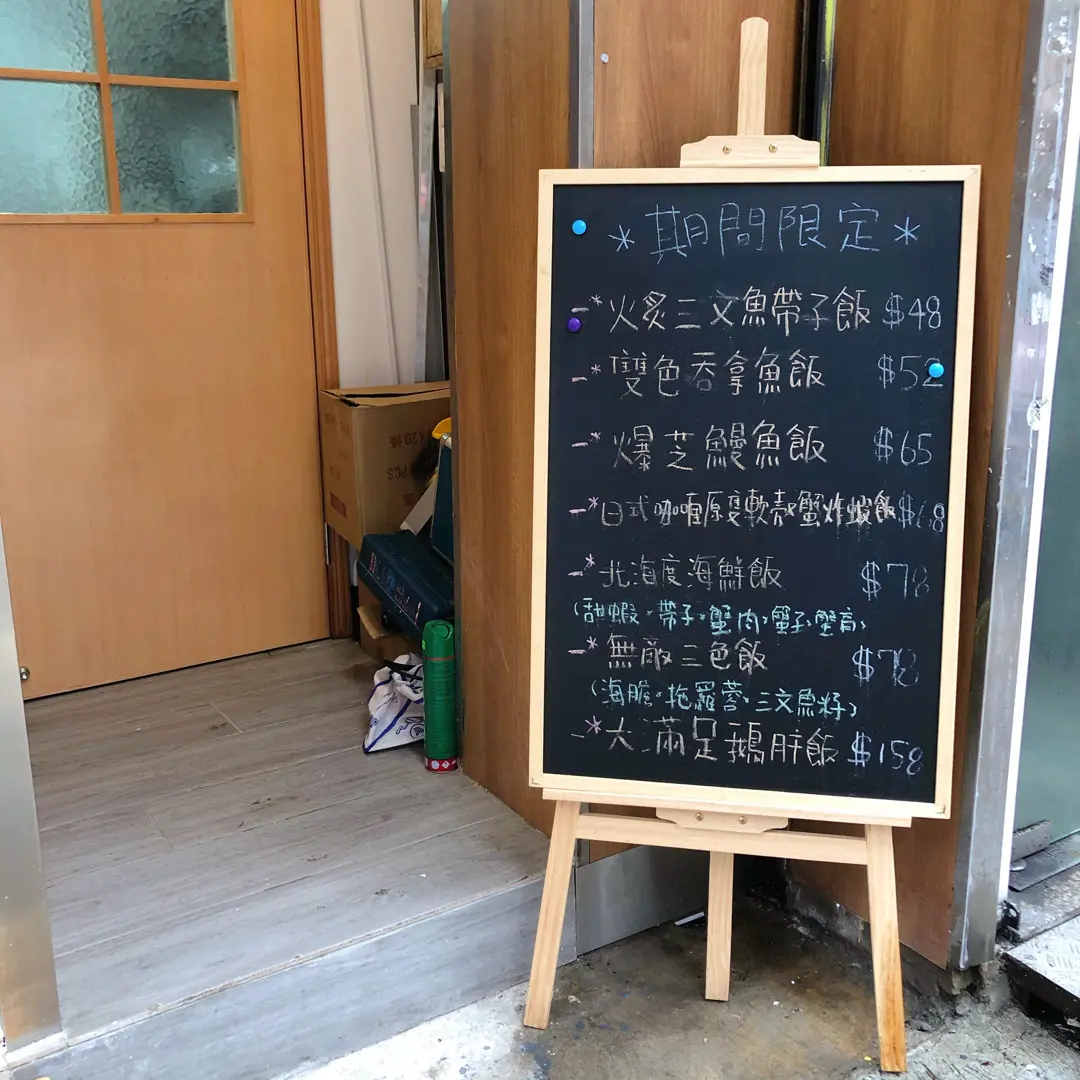 *期間限定*
-*火炙三文魚帶子飯 $48
-*雙色吞拿魚飯 $52
-*爆芝鰻魚飯 $65
-*日式咖喱原隻軟殼蟹炸蝦飯 $68
-*北海度海鮮飯 $78
(甜蝦、帶子、蟹肉、蟹子、蟹膏)
-*無敵三色飯 $78
(海膽、拖羅蓉、三文魚籽)
-*大滿足鵝肝飯 $158